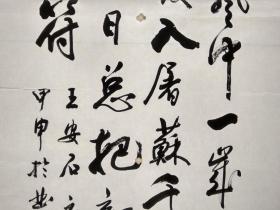 中一歲
入屠蘇千
日总把
符
王安石
甲申於